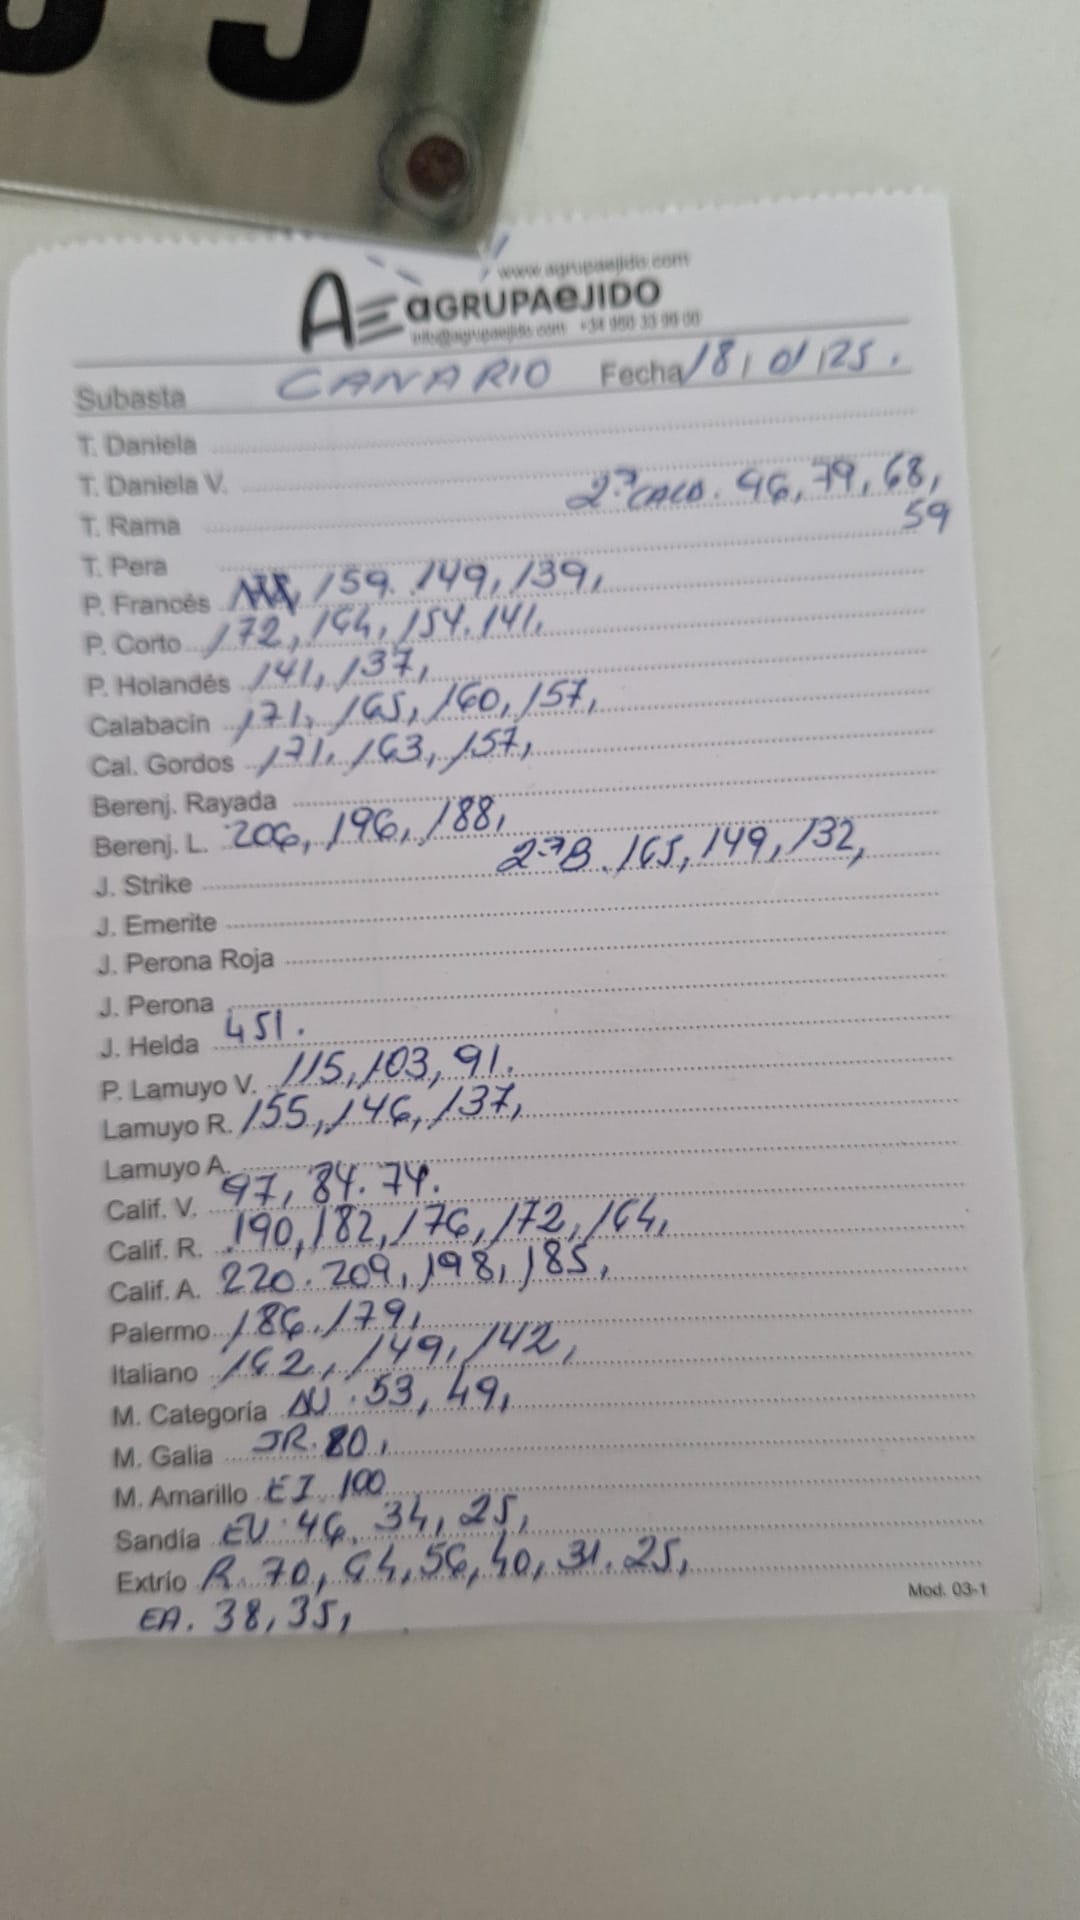 www.agrupaejido.com
AE aGRUPAeJIDO
info@agrupaejido.com +34 950 33 99 00
Subasta CANARIO Fecha 18, 01 125.
T. Daniela
T. Daniela V.
2ª CALB. 96, 79, 68,
T. Rama
59
T. Pera
P. Francés 159. 149, 139,
P. Corto 172, 164, 154. 141.
P. Holandés 141, 137,
Calabacín 171, 165, 160, 157,
Cal. Gordos 171, 163, 157,
Berenj. Rayada
Berenj. L. 206, 196, 188,
2ª B. 165, 149, 132,
J. Strike
J. Emerite
J. Perona Roja
J. Perona
J. Helda 451.
P. Lamuyo V. 115, 103, 91.
Lamuyo R. 155, 146, 137,
Lamuyo A.
Calif. V. 97, 84. 74.
Calif. R. 190, 182, 176, 172, 164,
Calif. A. 220. 209, 198, 185,
Palermo 186, 179,
Italiano 162, 149, 142,
M. Categoría AU. 53, 49,
M. Galia JR. 80,
M. Amarillo EI. 100
Sandía EV. 46, 34, 25,
Extrío R. 70, 64, 56, 40, 31. 25,
EA. 38, 35,
Mod. 03-1